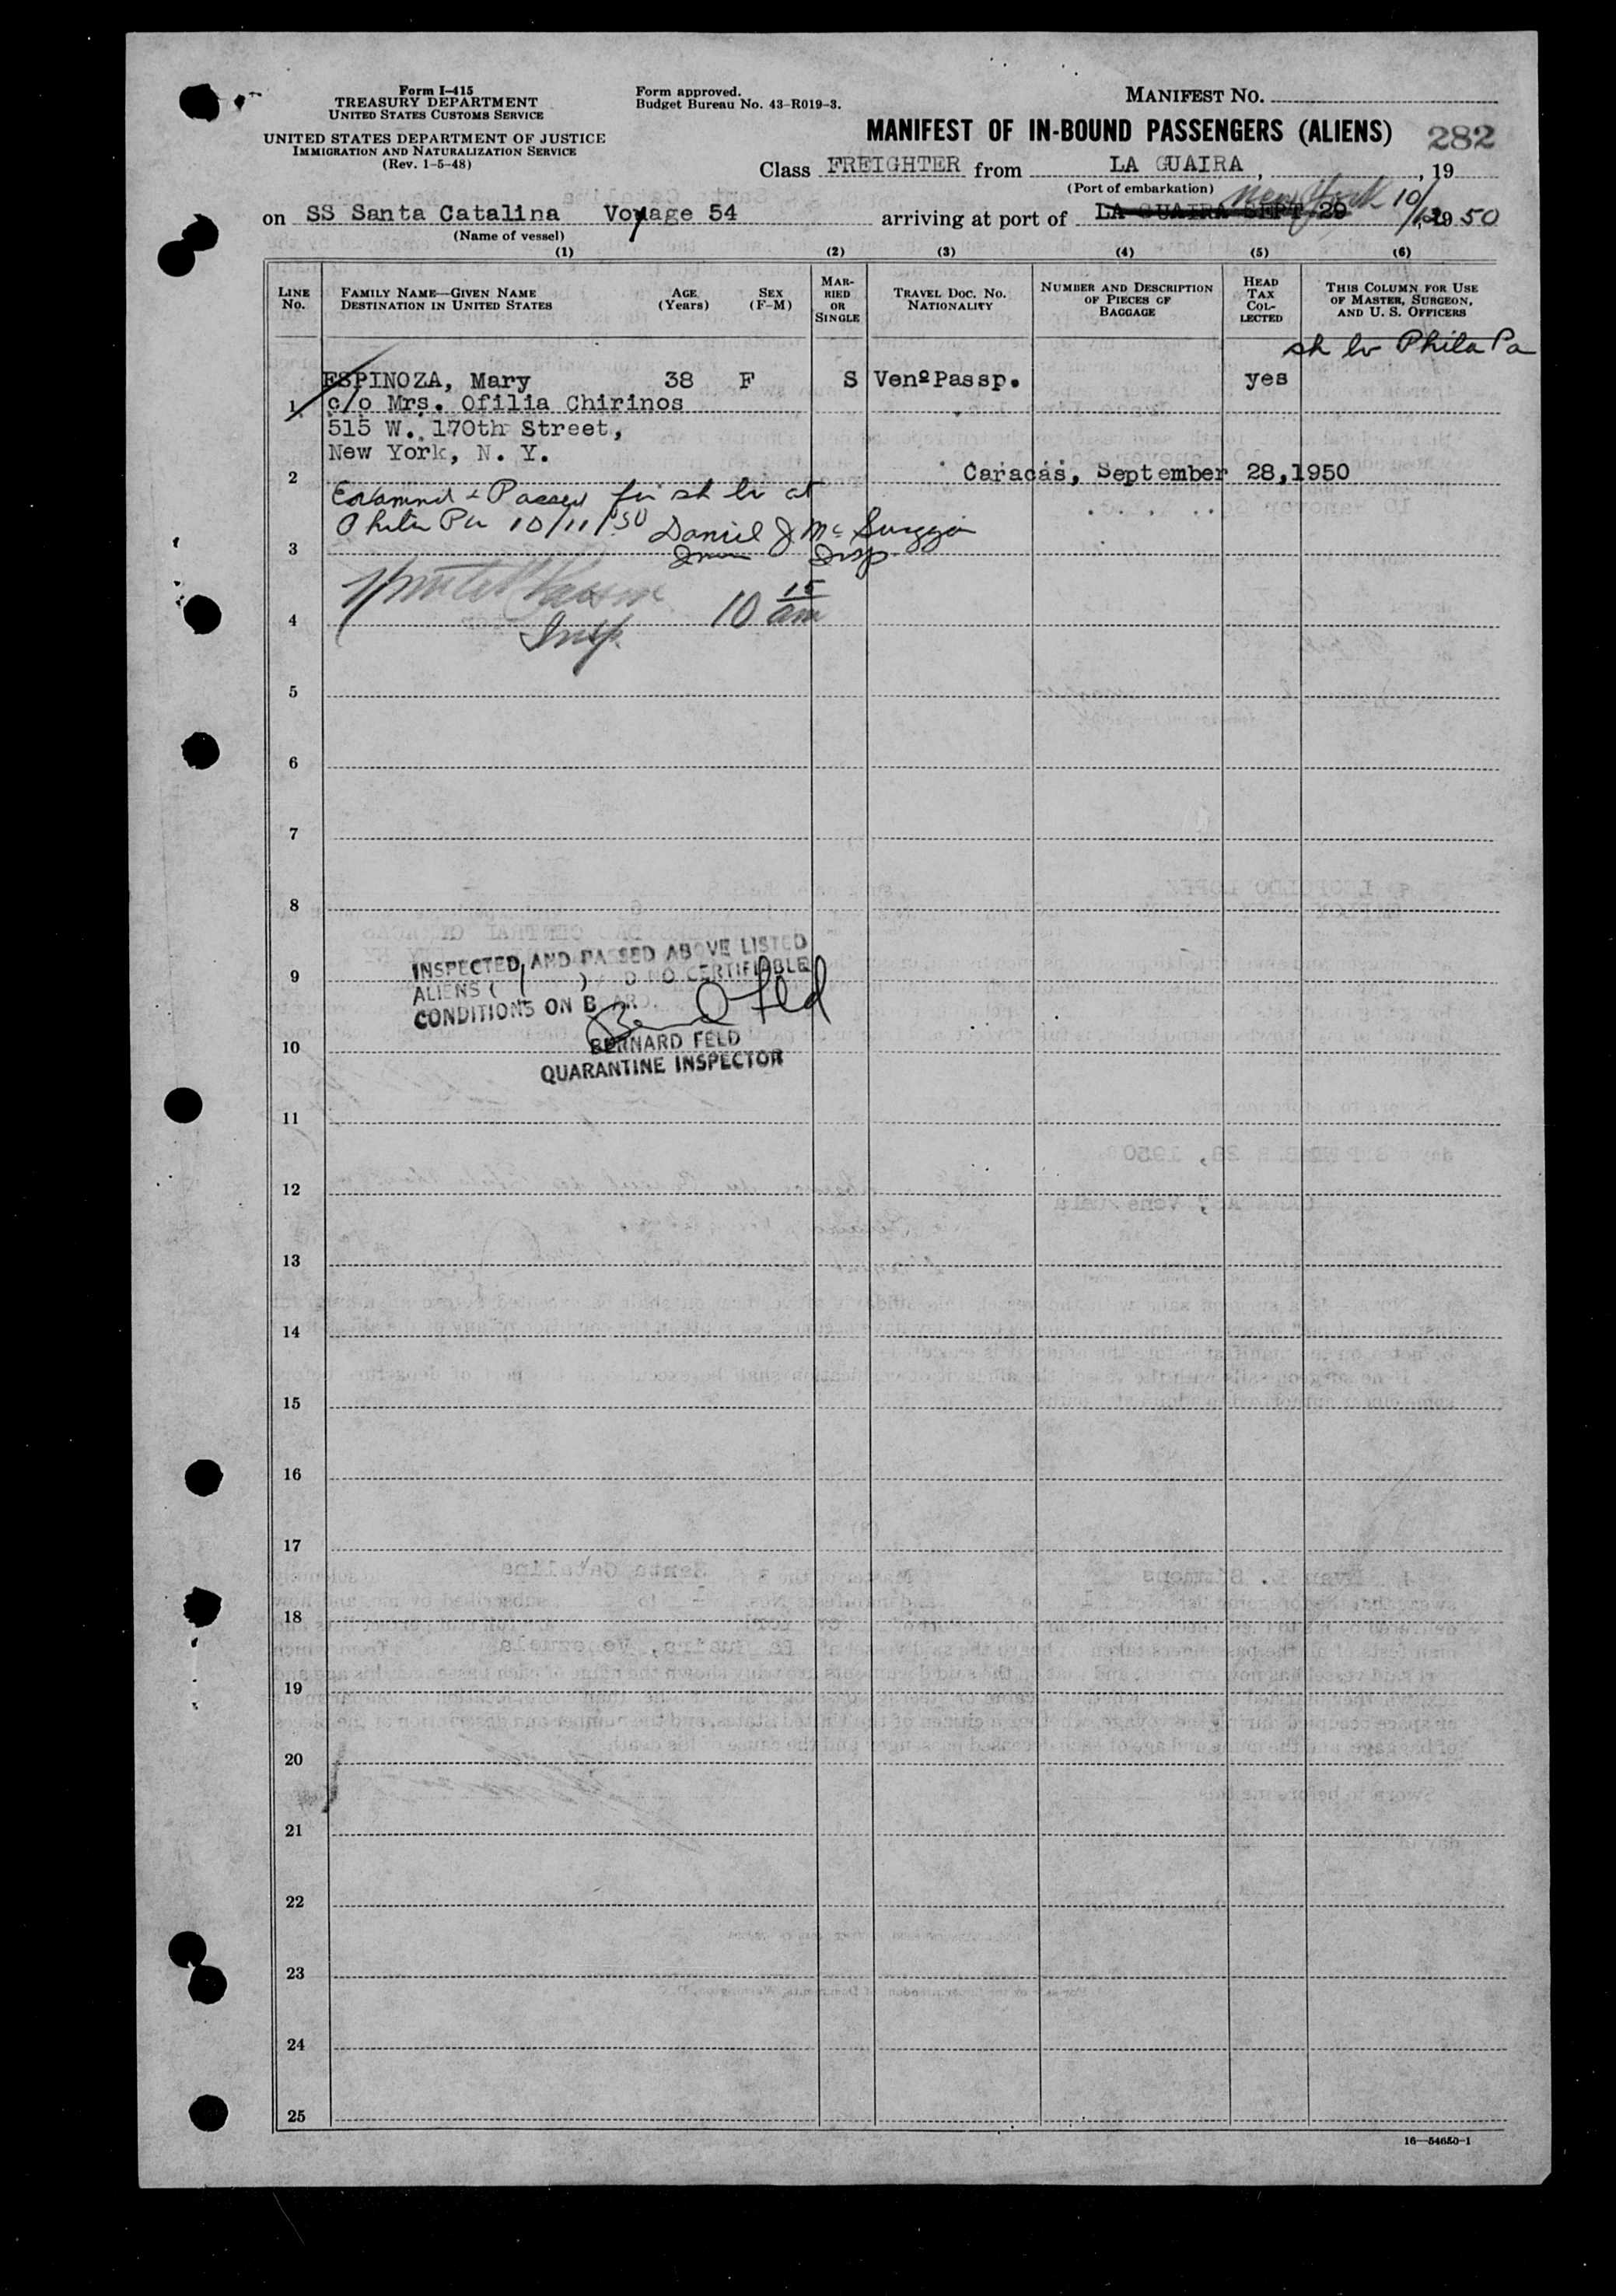 Form I-415
TREASURY DEPARTMENT
UNITED STATES CUSTOMS SERVICE
UNITED STATES DEPARTMENT OF JUSTICE
IMMIGRATION AND NATURALIZATION SERVICE
(Rev. 1-5-48)
Form approved.
Budget Bureau No. 43-R019-3.
MANIFEST NO.
MANIFEST OF IN-BOUND PASSENGERS (ALIENS)
282
Class FREIGHTER from LA GUAIRA, , 19
(Port of embarkation)
New York 10/
on SS Santa Catalina Voyage 54 arriving at port of LA GUAIRA SEPT 29, 19 50
(Name of vessel)
(1) (2) (3) (4) (5) (6)
LINE No.
FAMILY NAME—GIVEN NAME
DESTINATION IN UNITED STATES
AGE (Years)
SEX (F-M)
MARRIED OR SINGLE
TRAVEL DOC. NO. NATIONALITY
NUMBER AND DESCRIPTION OF PIECES OF BAGGAGE
HEAD TAX COLLECTED
THIS COLUMN FOR USE OF MASTER, SURGEON, AND U. S. OFFICERS
sh lv Phila Pa
ESPINOZA, Mary 38 F S Venº Passp. yes
1 c/o Mrs. Ofilia Chirinos
515 W. 170th Street,
New York, N. Y.
2 Caracas, September 28,1950
Examined & Passed for sh lv at
Phila Pa 10/11/50 Daniel J Mc
3 Imm Insp
10 15 am
4
Insp.
5
6
7
8
INSPECTED AND PASSED ABOVE LISTED
9
ALIENS ( 1 ) D NO CERTIFIABLE
CONDITIONS ON B ARD.
BERNARD FELD
10
QUARANTINE INSPECTOR
11
12
13
14
15
16
17
18
19
20
21
22
23
24
25
16—54650-1